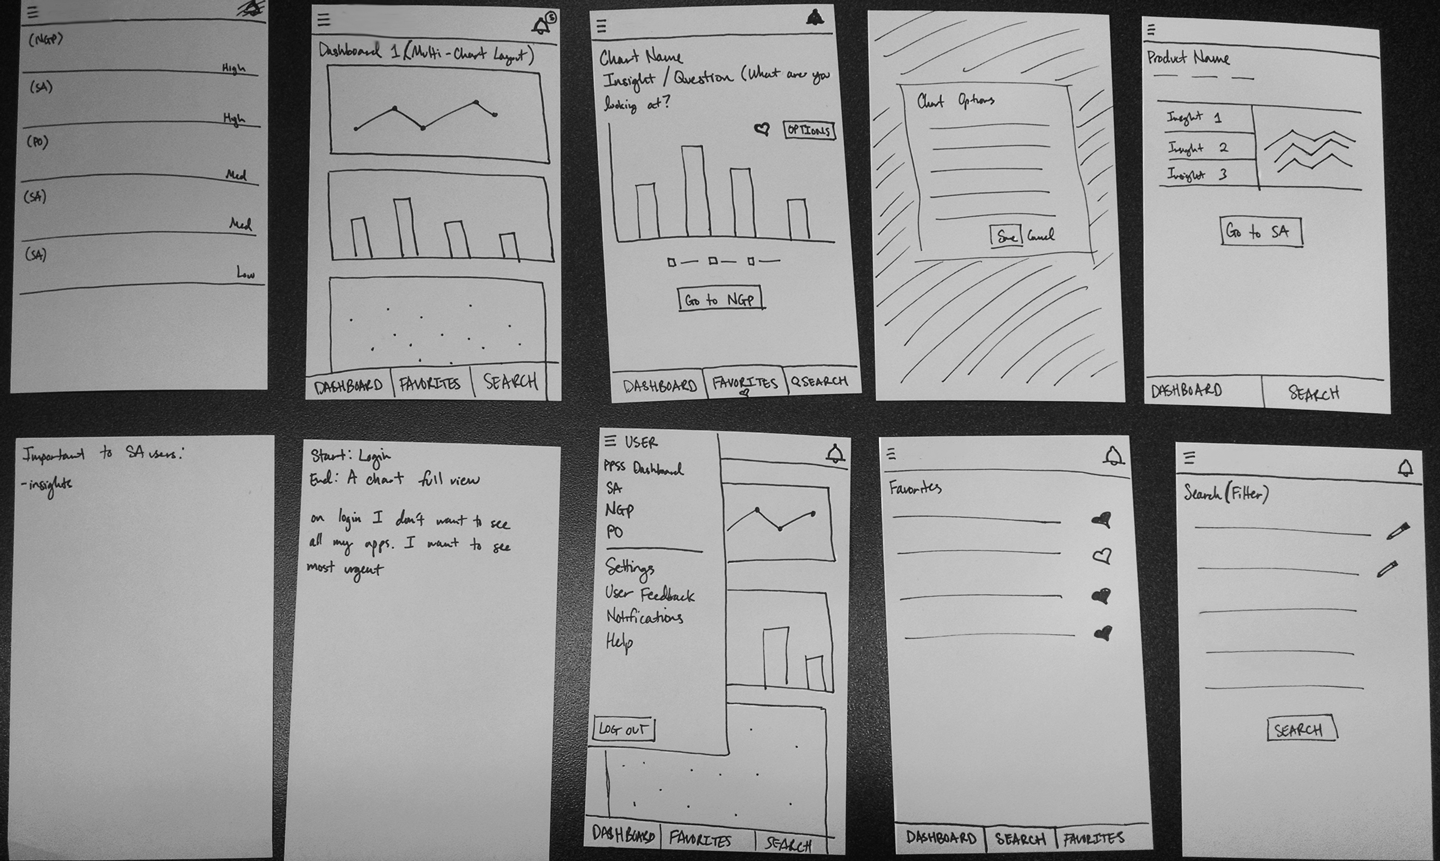 (NGP)
High
(SA)
High
(PO)
Med
(SA)
Med
(SA)
Low
5
Dashboard 1 (Multi-Chart Layout)
DASHBOARD FAVORITES SEARCH
Chart Name
Insight / Question (What are you
looking at?
OPTIONS
Go to NGP
DASHBOARD FAVORITES SEARCH
Chart Options
Save Cancel
Product Name
Insight 1
Insight 2
Insight 3
Go to SA
DASHBOARD SEARCH
Important to SA users:
-insights
Start: Login
End: A chart full view
on login I don't want to see
all my apps. I want to see
most urgent
USER
PPSS Dashboard
SA
NGP
PO
Settings
User Feedback
Notifications
Help
LOG OUT
DASHBOARD FAVORITES SEARCH
Favorites
DASHBOARD SEARCH FAVORITES
Search (Filter)
SEARCH